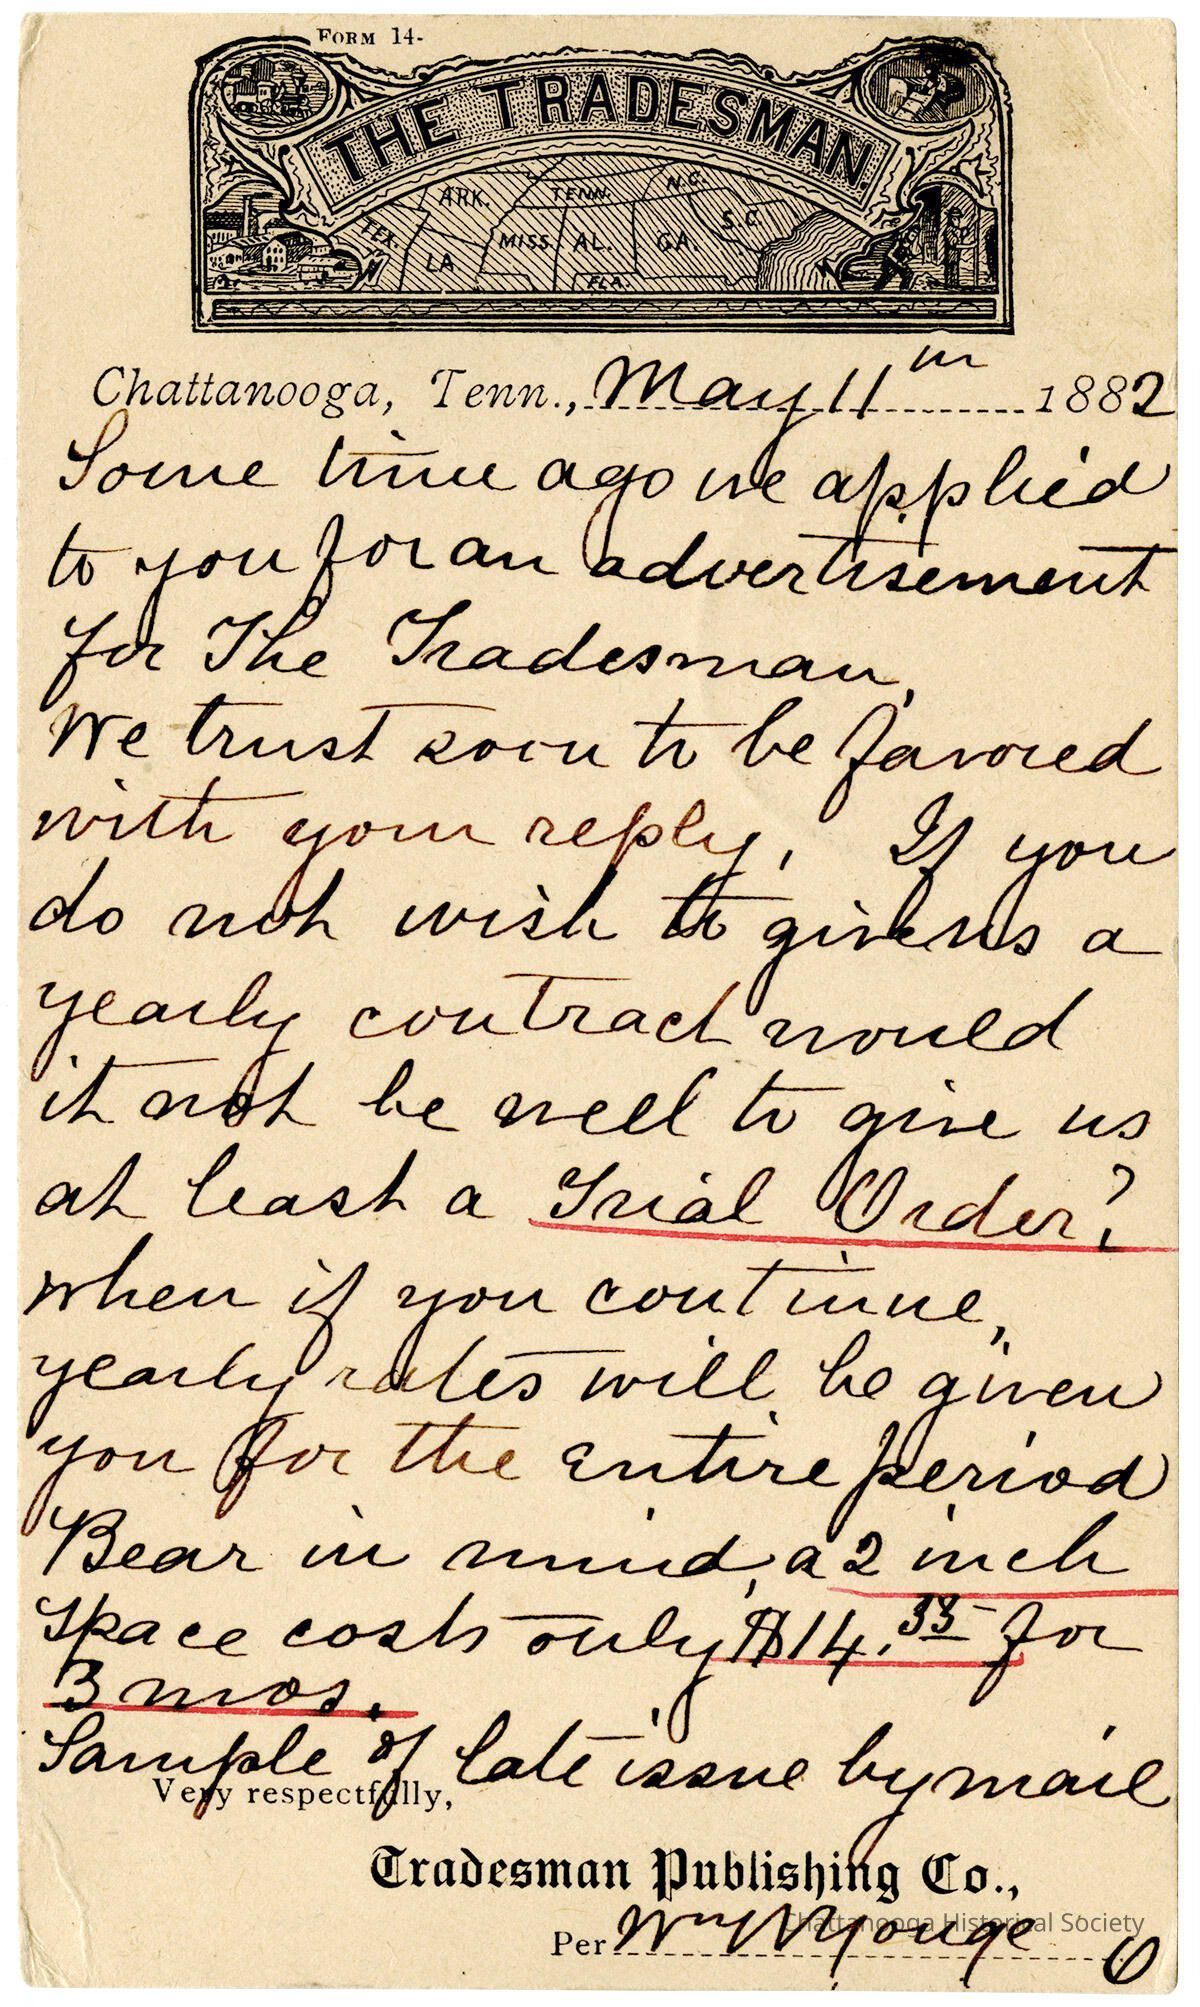 FORM 14-
THE TRADESMAN.
ARK. TENN. N.C.
TEX. LA MISS. AL. GA. S.C.
FLA.
Chattanooga, Tenn., May 11th 1882
Some time ago we applied
to you for an advertisement
for The Tradesman.
We trust soon to be favored
with your reply, If you
do not wish to give us a
yearly contract would
it not be well to give us
at least a Trial Order?
when if you continue,
yearly rates will be given
you for the entire period
Bear in mind, a 2 inch
space costs only $14.33 for
3 mos.
Sample of late issue by mail
Very respectfully,
Tradesman Publishing Co.,
Per Wm
Chattanooga Historical Society